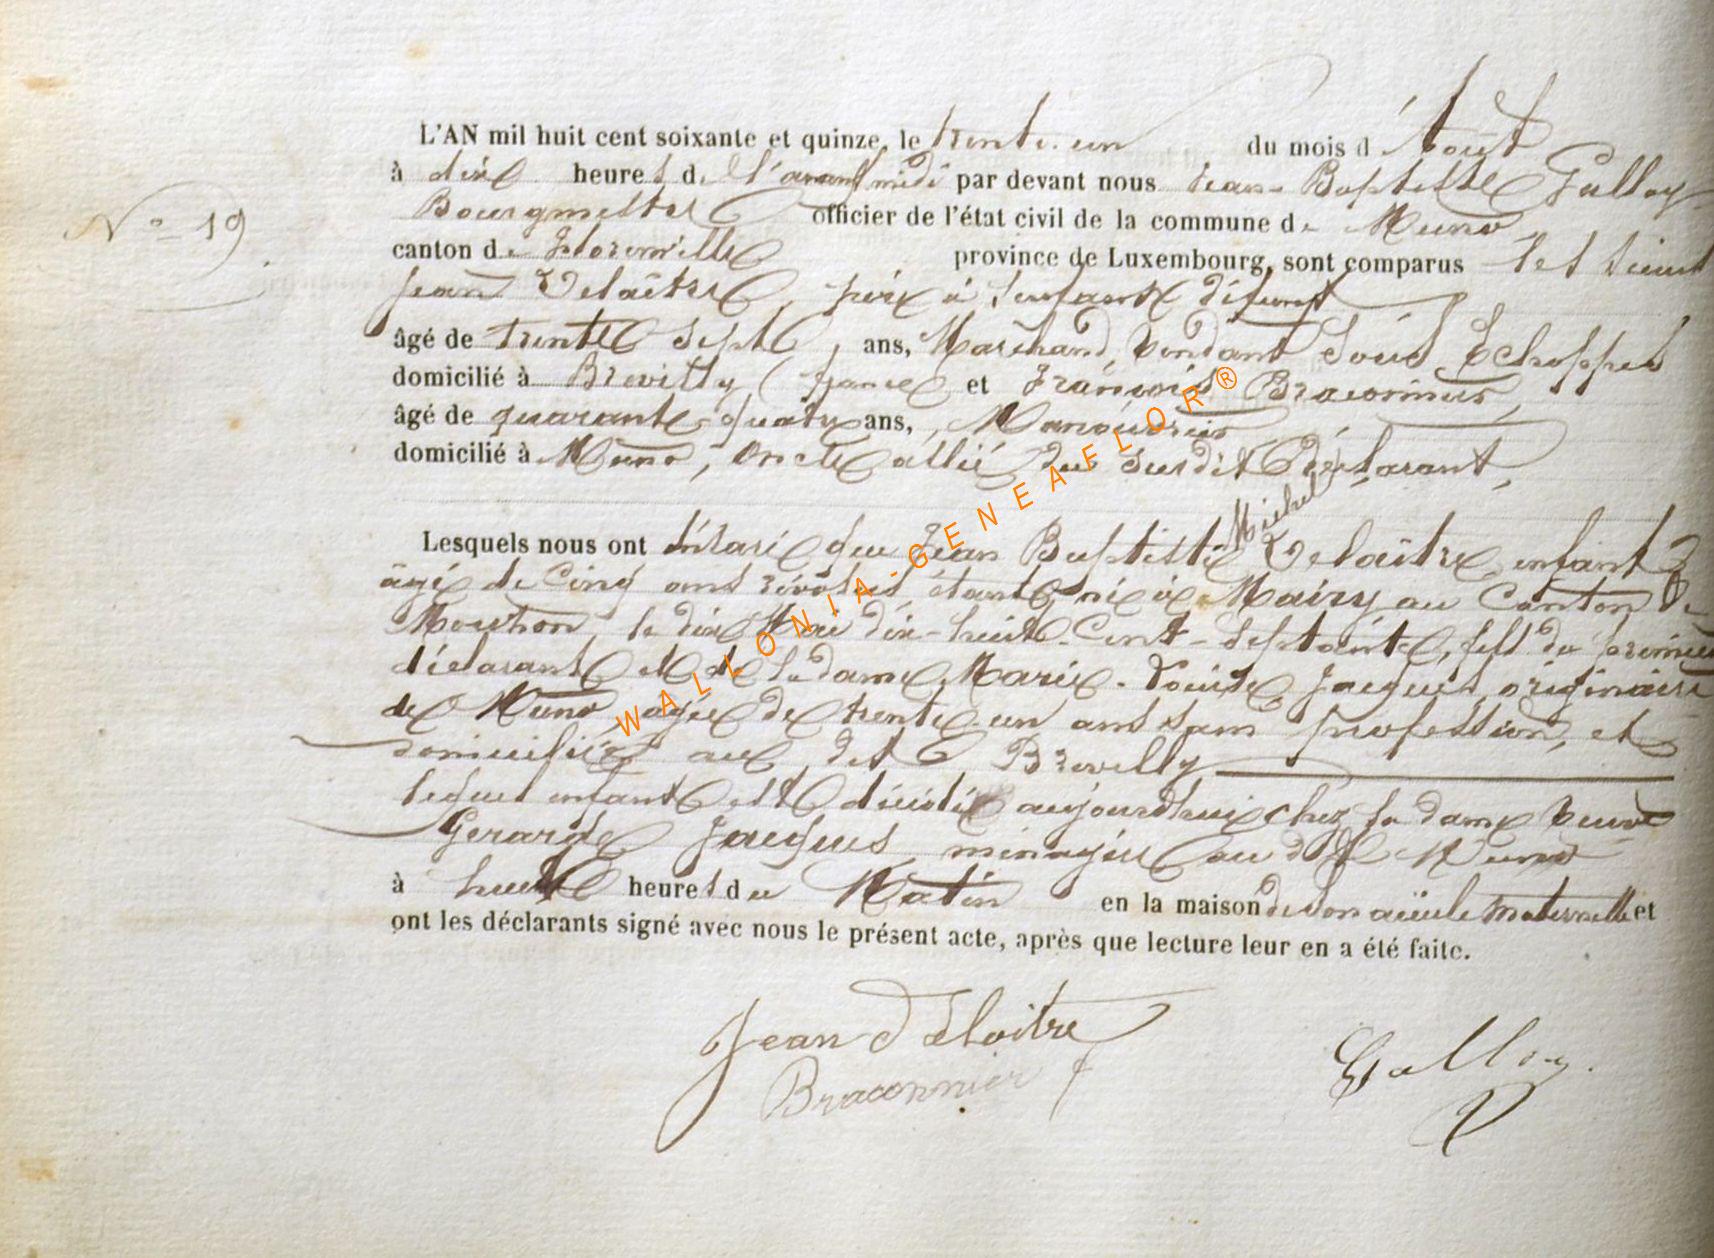 L'AN mil huit cent soixante et quinze, le trente-un du mois d'Août
à dix heures de l'avant midi par devant nous Jean-Baptiste Galloy
N° 19
Bourgmestre officier de l'état civil de la commune de Muno
canton de Florenville province de Luxembourg, sont comparus les sieurs
Jean Delaître, père à l'enfant défunt
âgé de trente sept, ans, Marchand, vendant sous Echoppes
domicilié à Brevilly (france et François Braconnier,
âgé de quarante-quatre ans, Manoeuvrier
domicilié à Muno, oncle allié du susdit déclarant,
Michel
Lesquels nous ont déclaré que Jean Baptiste Delaître, enfant
âgé de Cinq ans révolus étant né à Mairy au Canton de
Mouzon, le dix Mai dix-huit-Cent-Septante, fils du premier
déclarant et de la dame Marie-Louise Jacques, originaire
de Muno, agée de trente-un ans sans profession, et
domiciliée au dit Brevilly
lequel enfant est décédé aujourdhui chez la dame veuve
Gerarde Jacques, ménagère au dit Muno
à huit heures du Matin en la maison de son aïeule maternelle et
ont les déclarants signé avec nous le présent acte, après que lecture leur en a été faite.
Jean Delaitre
Braconnier f
Galloy
WALLONIA-GENEAFLOR®